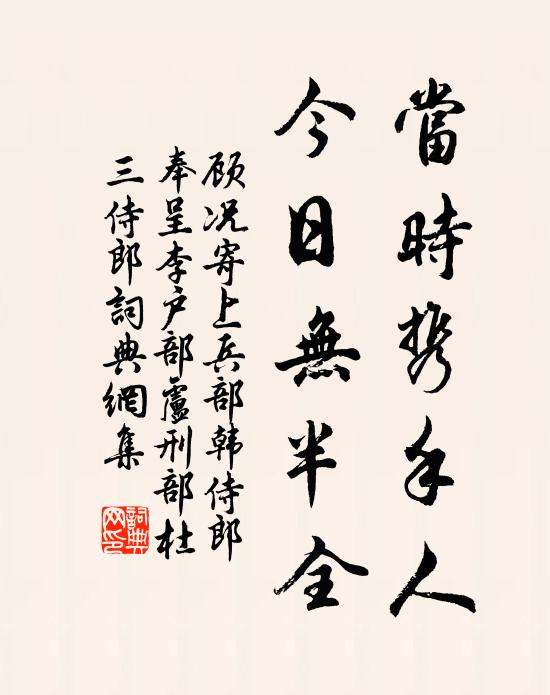 當時携手人
今日無半全
顾况寄上兵部韩侍郎
奉呈李户部盧刑部杜
三侍郎詞典網集
詞典
网印